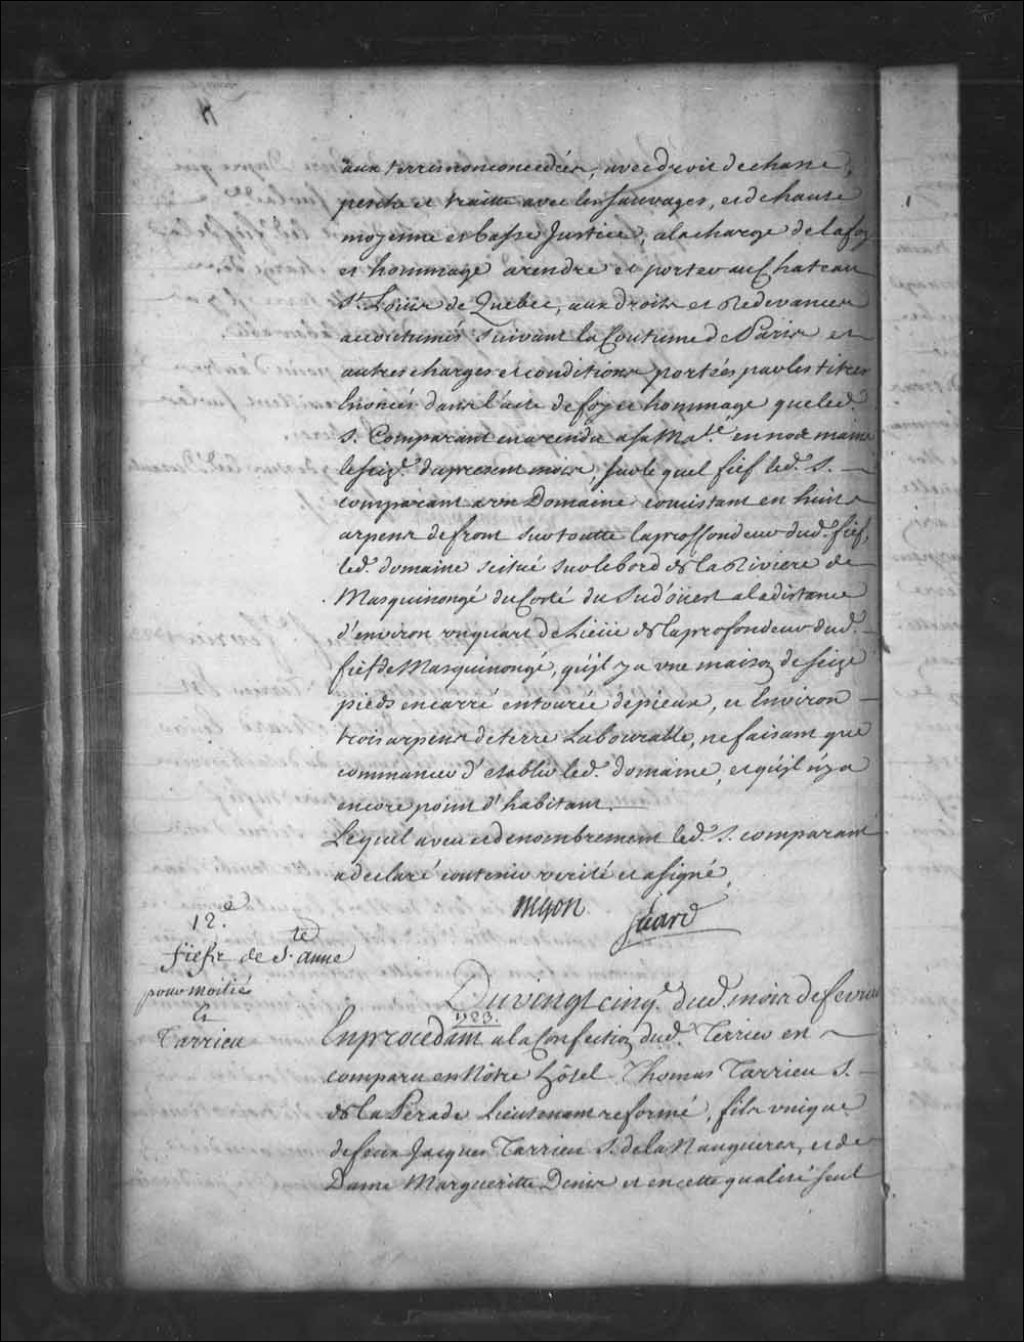 aux terres nonconcedées, avec droit de chasse,
pesche et traitte avec les sauvages, et de haute
moyenne et basse Justice, a la charge de la foy
et hommage a rendre et porter au Chateau
St. Louis de Quebec, aux droits et Redevances
accoutumés suivant la Coutume de Paris et
autres charges et conditions portées par les titres
Enoncés dans l'acte de foy et hommage que led.
S. Comparant en a rendu a sa Ma.té en nos mains
le seiz.e du present mois, sur lequel fief led. S.
comparant a un Domaine consistant en huit
arpens de front sur toutte la proffondeur dud. fief,
led. domaine scitué sur le bord de la Riviere de
Masquinongé du Costé du Sud'oüest a la distance
d'environ un quart de Lieüe de la profondeur dud.
fief de Masquinongé, qu'jl y a une maison de seize
pieds en carré entourée de pieux, et Environ
trois arpens de terre Labourable, ne faisant que
commancer d'etablir led. domaine, et qu'jl n'y a
encore point d'habitant.
Lequel aveu et denombrement led. S. comparant
a declaré contenir verité et a signé.
Begon
12.e
fiefs de S.te Anne
pour moitié
et
Tarrieu
Du vingt cinq.e dud. mois de fevrier
1723.
En procedant a la Confection dud. Terrier en
comparu en Nôtre hôtel Thomas Tarrieu S.
de la Perade Lieutenant reformé, fils unique
de feux Jacques Tarrieu S. de la Nauguieres, et de
Dame Margueritte Denis et en cette qualité seul